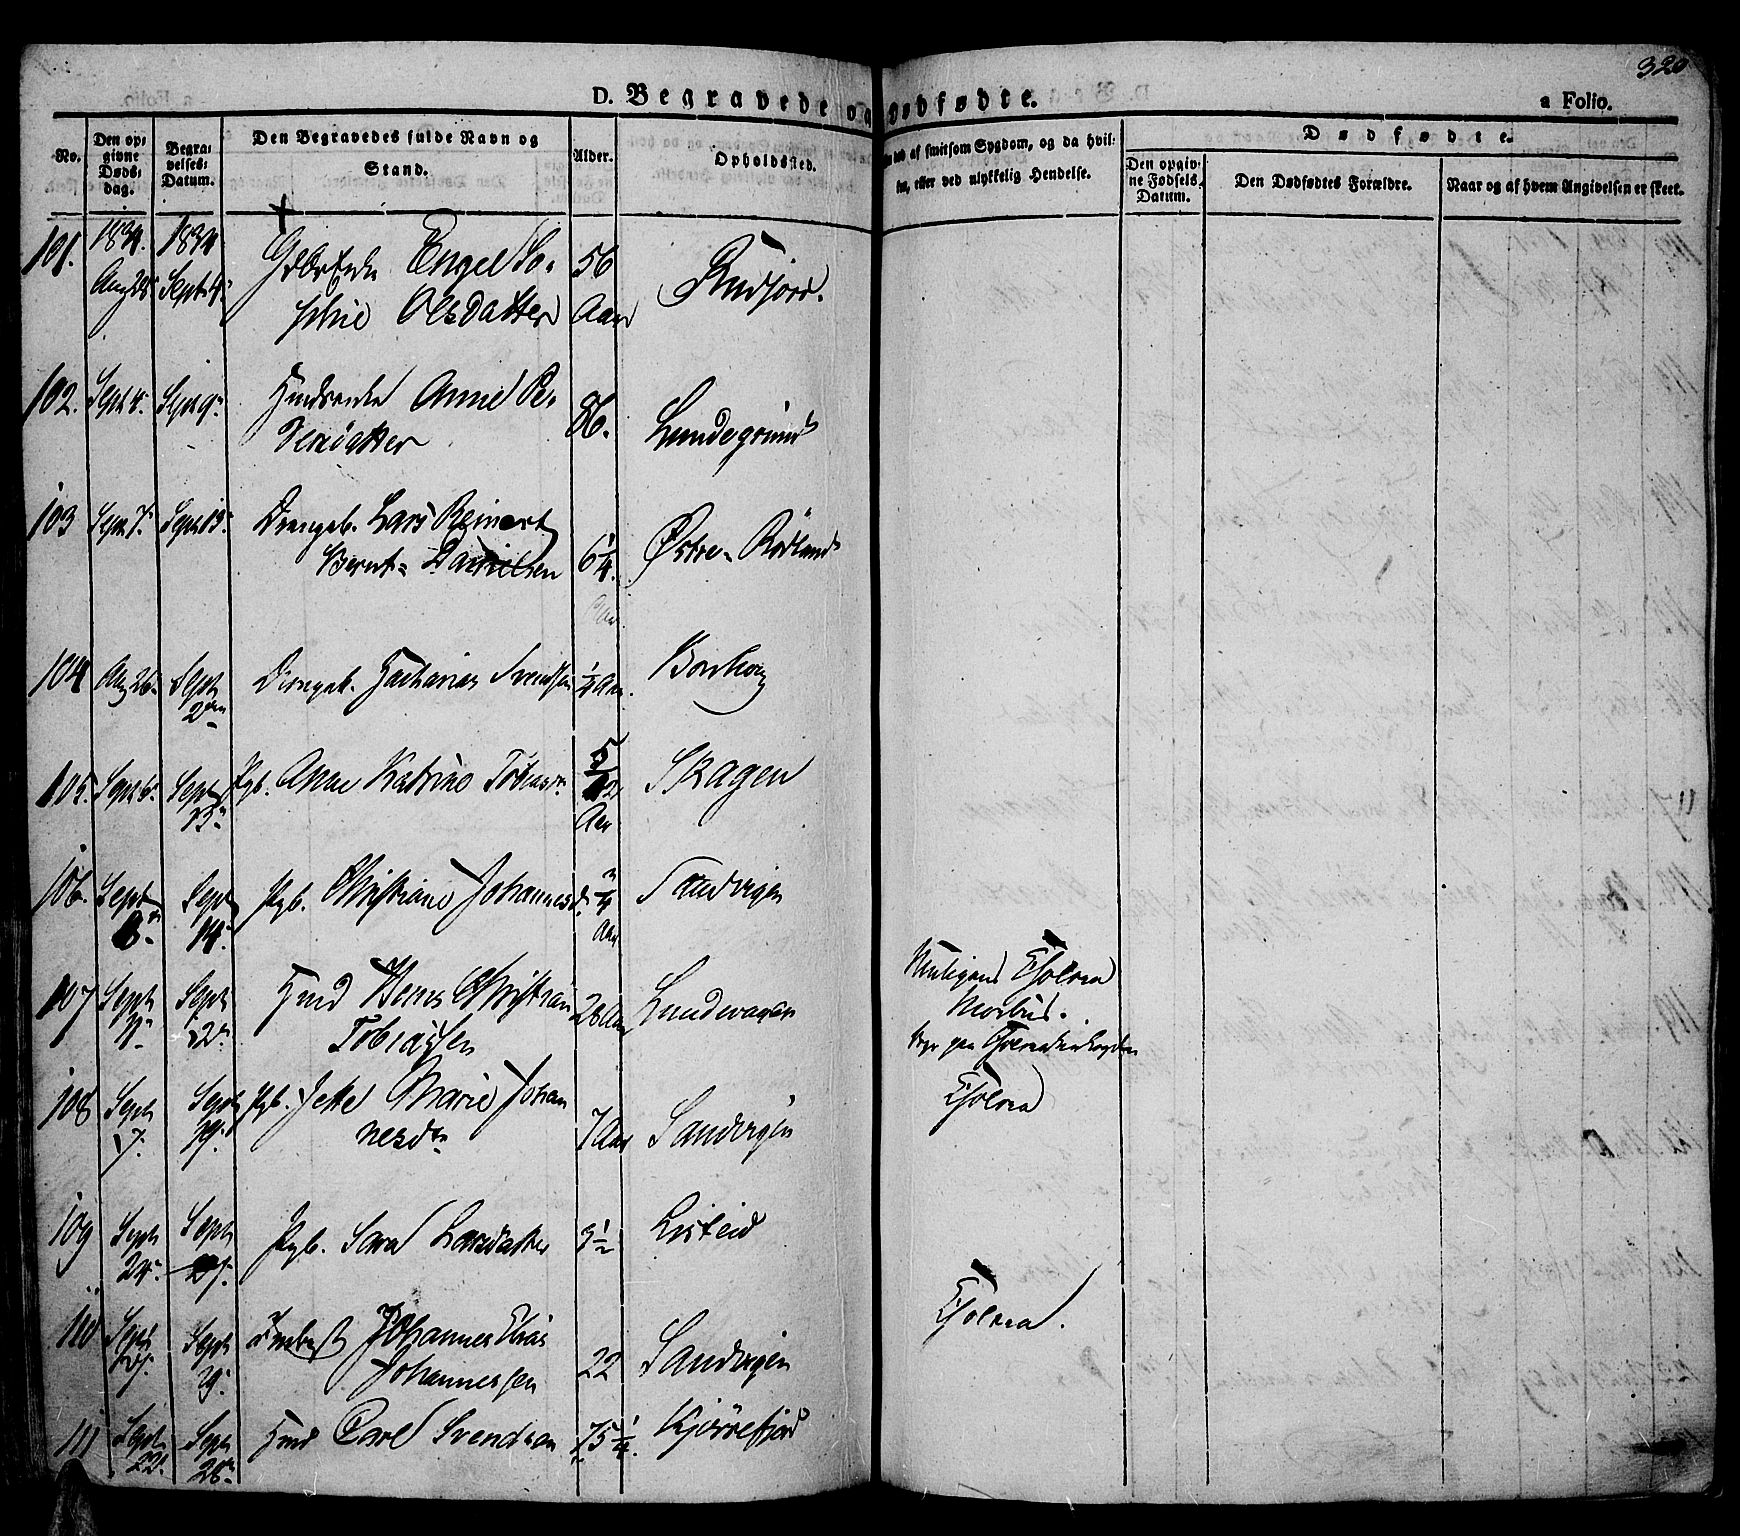 320
D. Begravede og Dødfødte.
a Folio.
No.
Den op-
givne
Døds-
dag.
Begra-
velses-
Datum.
Den Begravedes fulde Navn og
Stand.
Alder.
Opholdssted.
af smitsom Sygdom, og da hvil-
eller ved ulykkelig Hendelse.
Dødfødte.
Den opgiv-
ne Fødsels-
Datum.
Den Dødfødtes Forældre.
Naar og af hvem Angivelsen er skeet.
101. 1834. 1834 Engel So-
Sept 4 phie Olsdatter 56
Aar
102. Sept 4 Sept 9 Anne Pe-
dersdatter 86. Lundegrund
103 Sept 7 Sept 13 Drengeb. Lars Reinert
Bernt Danielsen 6 1/4 Østre Rødland
Aar
104 Aug 26 Sept
2den Drengeb. Zacharias Svendsen 1/4 Aar. Borhoug
105. Sept 6 Sept
13 Pgb. Anne Katrine Tobiasd. 5/12
Aar Skagen
106. Sept
8 Sept
14 Pgb. Christiane Johannesd. 3/4
Aar Sandvigen
107 Sept
Sept
12 Christian
Tobiassen 28 Aar Lundevaagen Cholera
Morbus.
108 Sept
7. Sept
Pgb. Jette Marie Johan
nesdtr 7 Aar Sandvigen Cholera
109 Sept
24 Sept
27. Pgb. Sara Larsdatter 3 1/2 Listeid
110 Sept
Sept
29. Johannes Elias
Johannessen 22 Sandvigen Cholera.
111 Sept
22 Sept
28 Carl Svendsen 75 1/4. Kjørrefjord